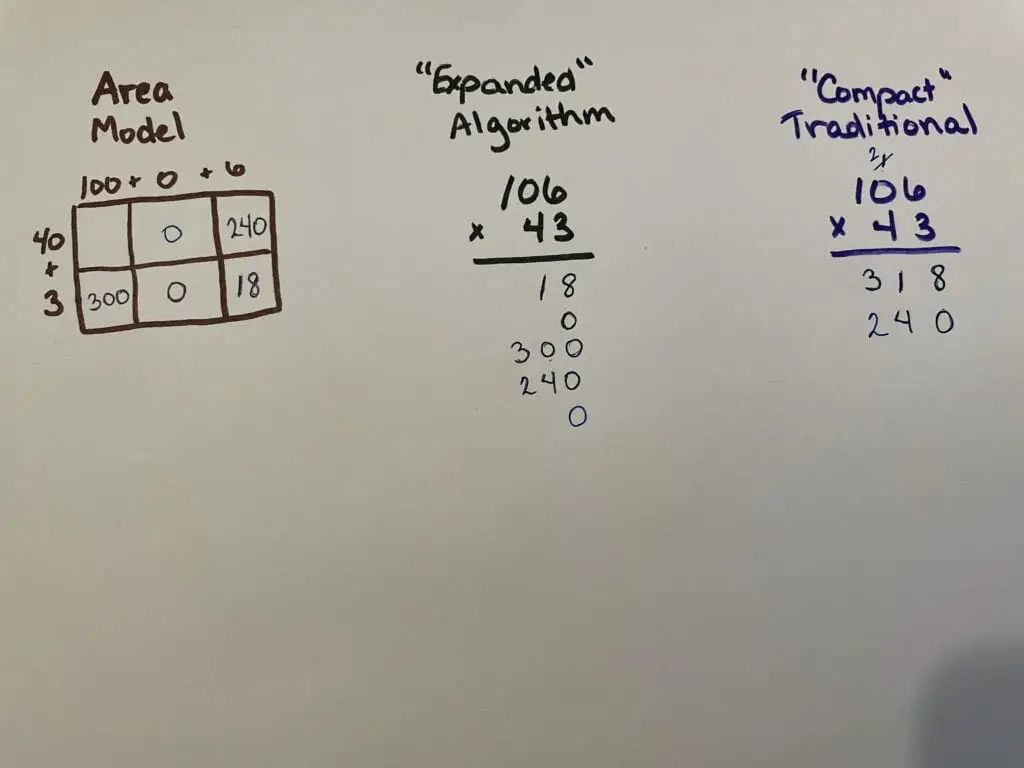 Area
Model
100 + 0 + 6
40
0
240
+
3
300
0
18
"Expanded"
Algorithm
106
x 43
18
0
300
240
0
"Compact"
Traditional
2 1
106
x 43
318
240